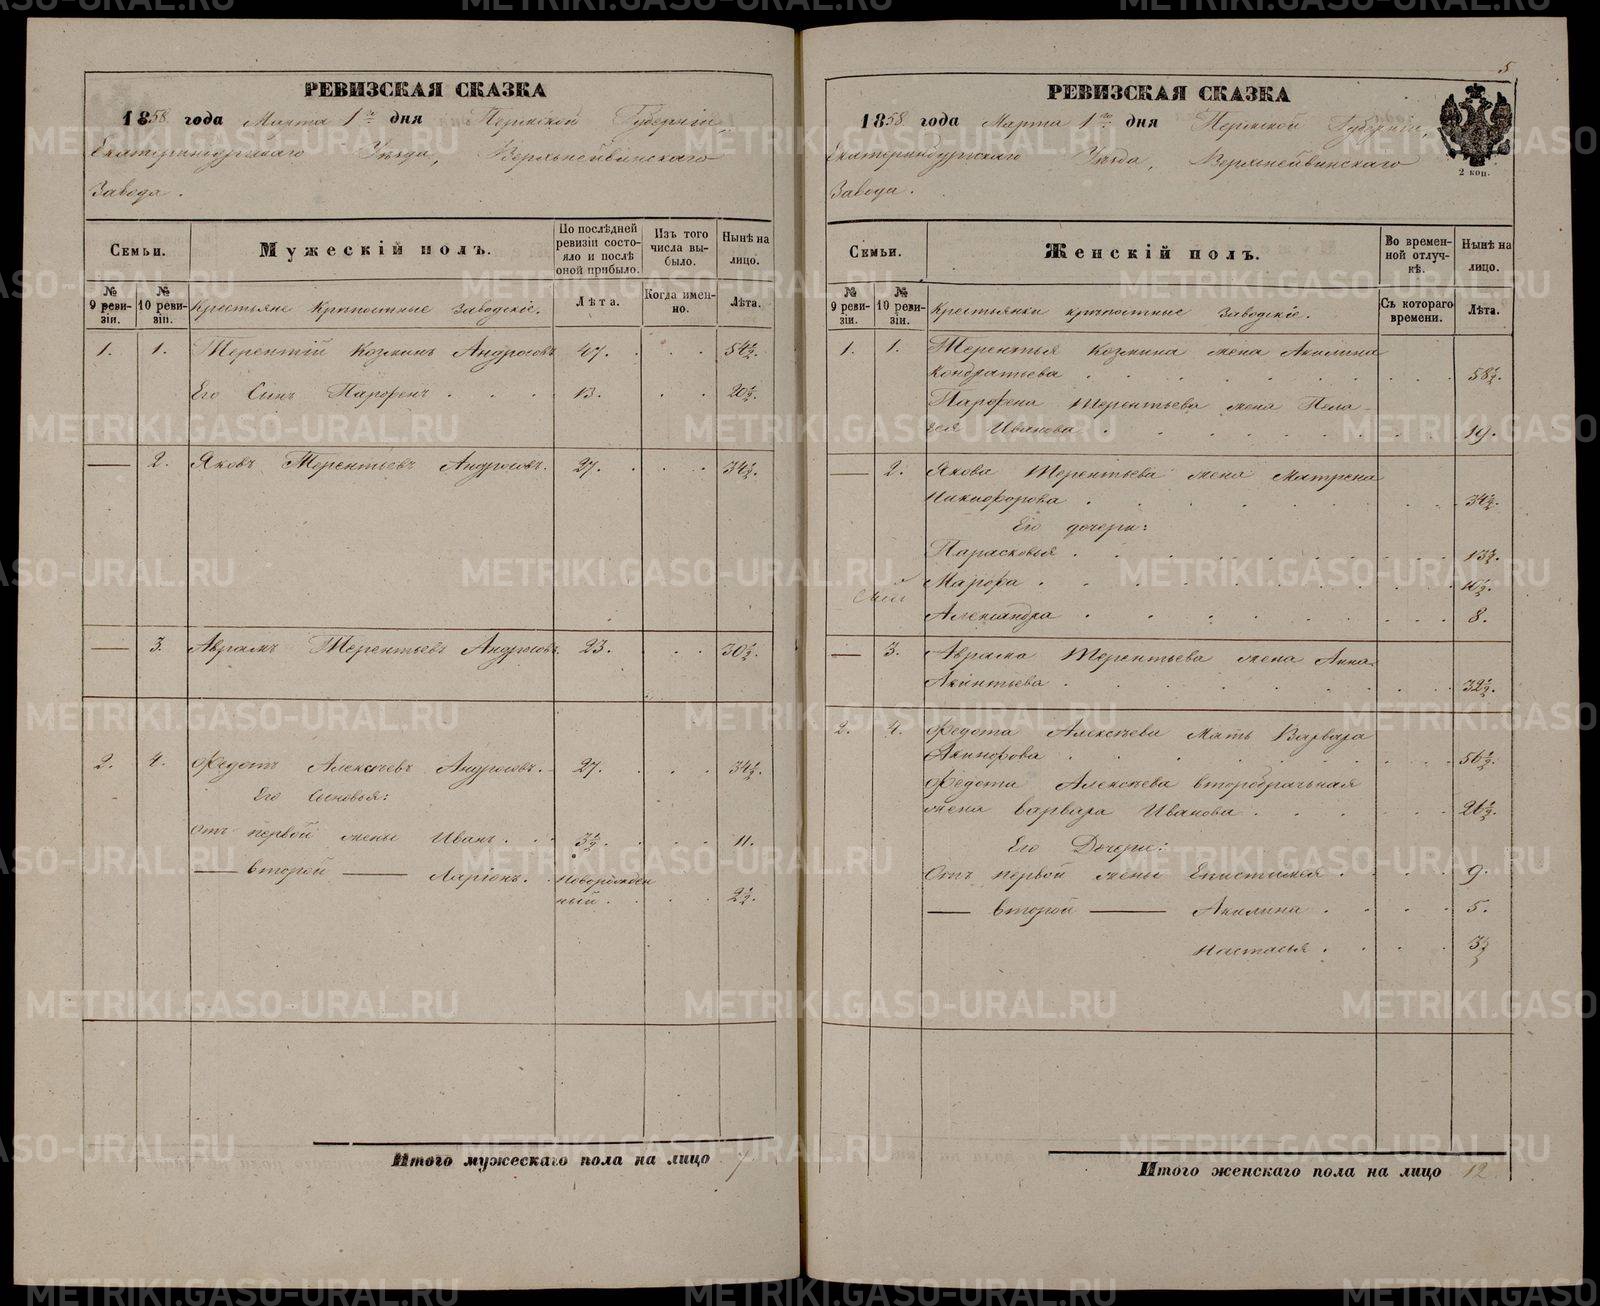 РЕВИЗСКАЯ СКАЗКА
1858 года Марта 1го дня Пермской Губерніи,
Екатеринбургскаго Уѣзда, Верхнейвинскаго
Завода.
Семьи.
Мужескій полъ.
По послѣдней ревизіи состояло и послѣ оной прибыло.
Изъ того числа выбыло.
Нынѣ на лицо.
№ 9 ревизіи.
№ 10 ревизіи.
Крестьяне Крѣпостные Заводскіе.
Лѣта.
Когда именно.
Лѣта.
1. 1. Терентій Козминъ Андросовъ 47. 54½.
Его Сынъ Парфенъ 13. 20½.
— 2. Яковъ Терентьевъ Андросовъ. 27. 34½.
— 3. Аврамъ Терентьевъ Андросовъ. 23. 30½.
2. 4. Федотъ Алексѣевъ Андросовъ. 27. 34½.
Его Сыновья:
Отъ первой жены Иванъ 3½. 11.
— второй — Ларіонъ. Новорожден
ный. 2½.
Итого мужескаго пола на лицо 7
5
РЕВИЗСКАЯ СКАЗКА
1858 года Марта 1го дня Пермской Губерніи,
Екатеринбургскаго Уѣзда, Верхнейвинскаго
Завода.
2 коп.
Семьи.
Женскій полъ.
Во временной отлучкѣ.
Нынѣ на лицо.
№ 9 ревизіи.
№ 10 ревизіи.
Крестьянки крѣпостные Заводскіе.
Съ котораго времени.
Лѣта.
1. 1. Терентья Козмина жена Акилина
Кондратьева 58½.
Парфена Терентьева жена Пела-
гея Иванова 19.
— 2. Якова Терентьева жена Матрена
Никифорова 34½.
Его дочери:
Парасковья 13½.
Марфа 10½.
Александра 8.
— 3. Аврама Терентьева жена Анна
Акинтьева 32½.
2. 4. Федота Алексѣева Мать Варвара
56½.
Федота Алексѣева второбрачная
жена Варвара Иванова 26½.
Его Дочери:
Отъ первой жены Епистимея 9.
— второй — Акилина 5.
Настасья 3½
Итого женскаго пола на лицо 12
METRIKI.GASO-URAL.RU